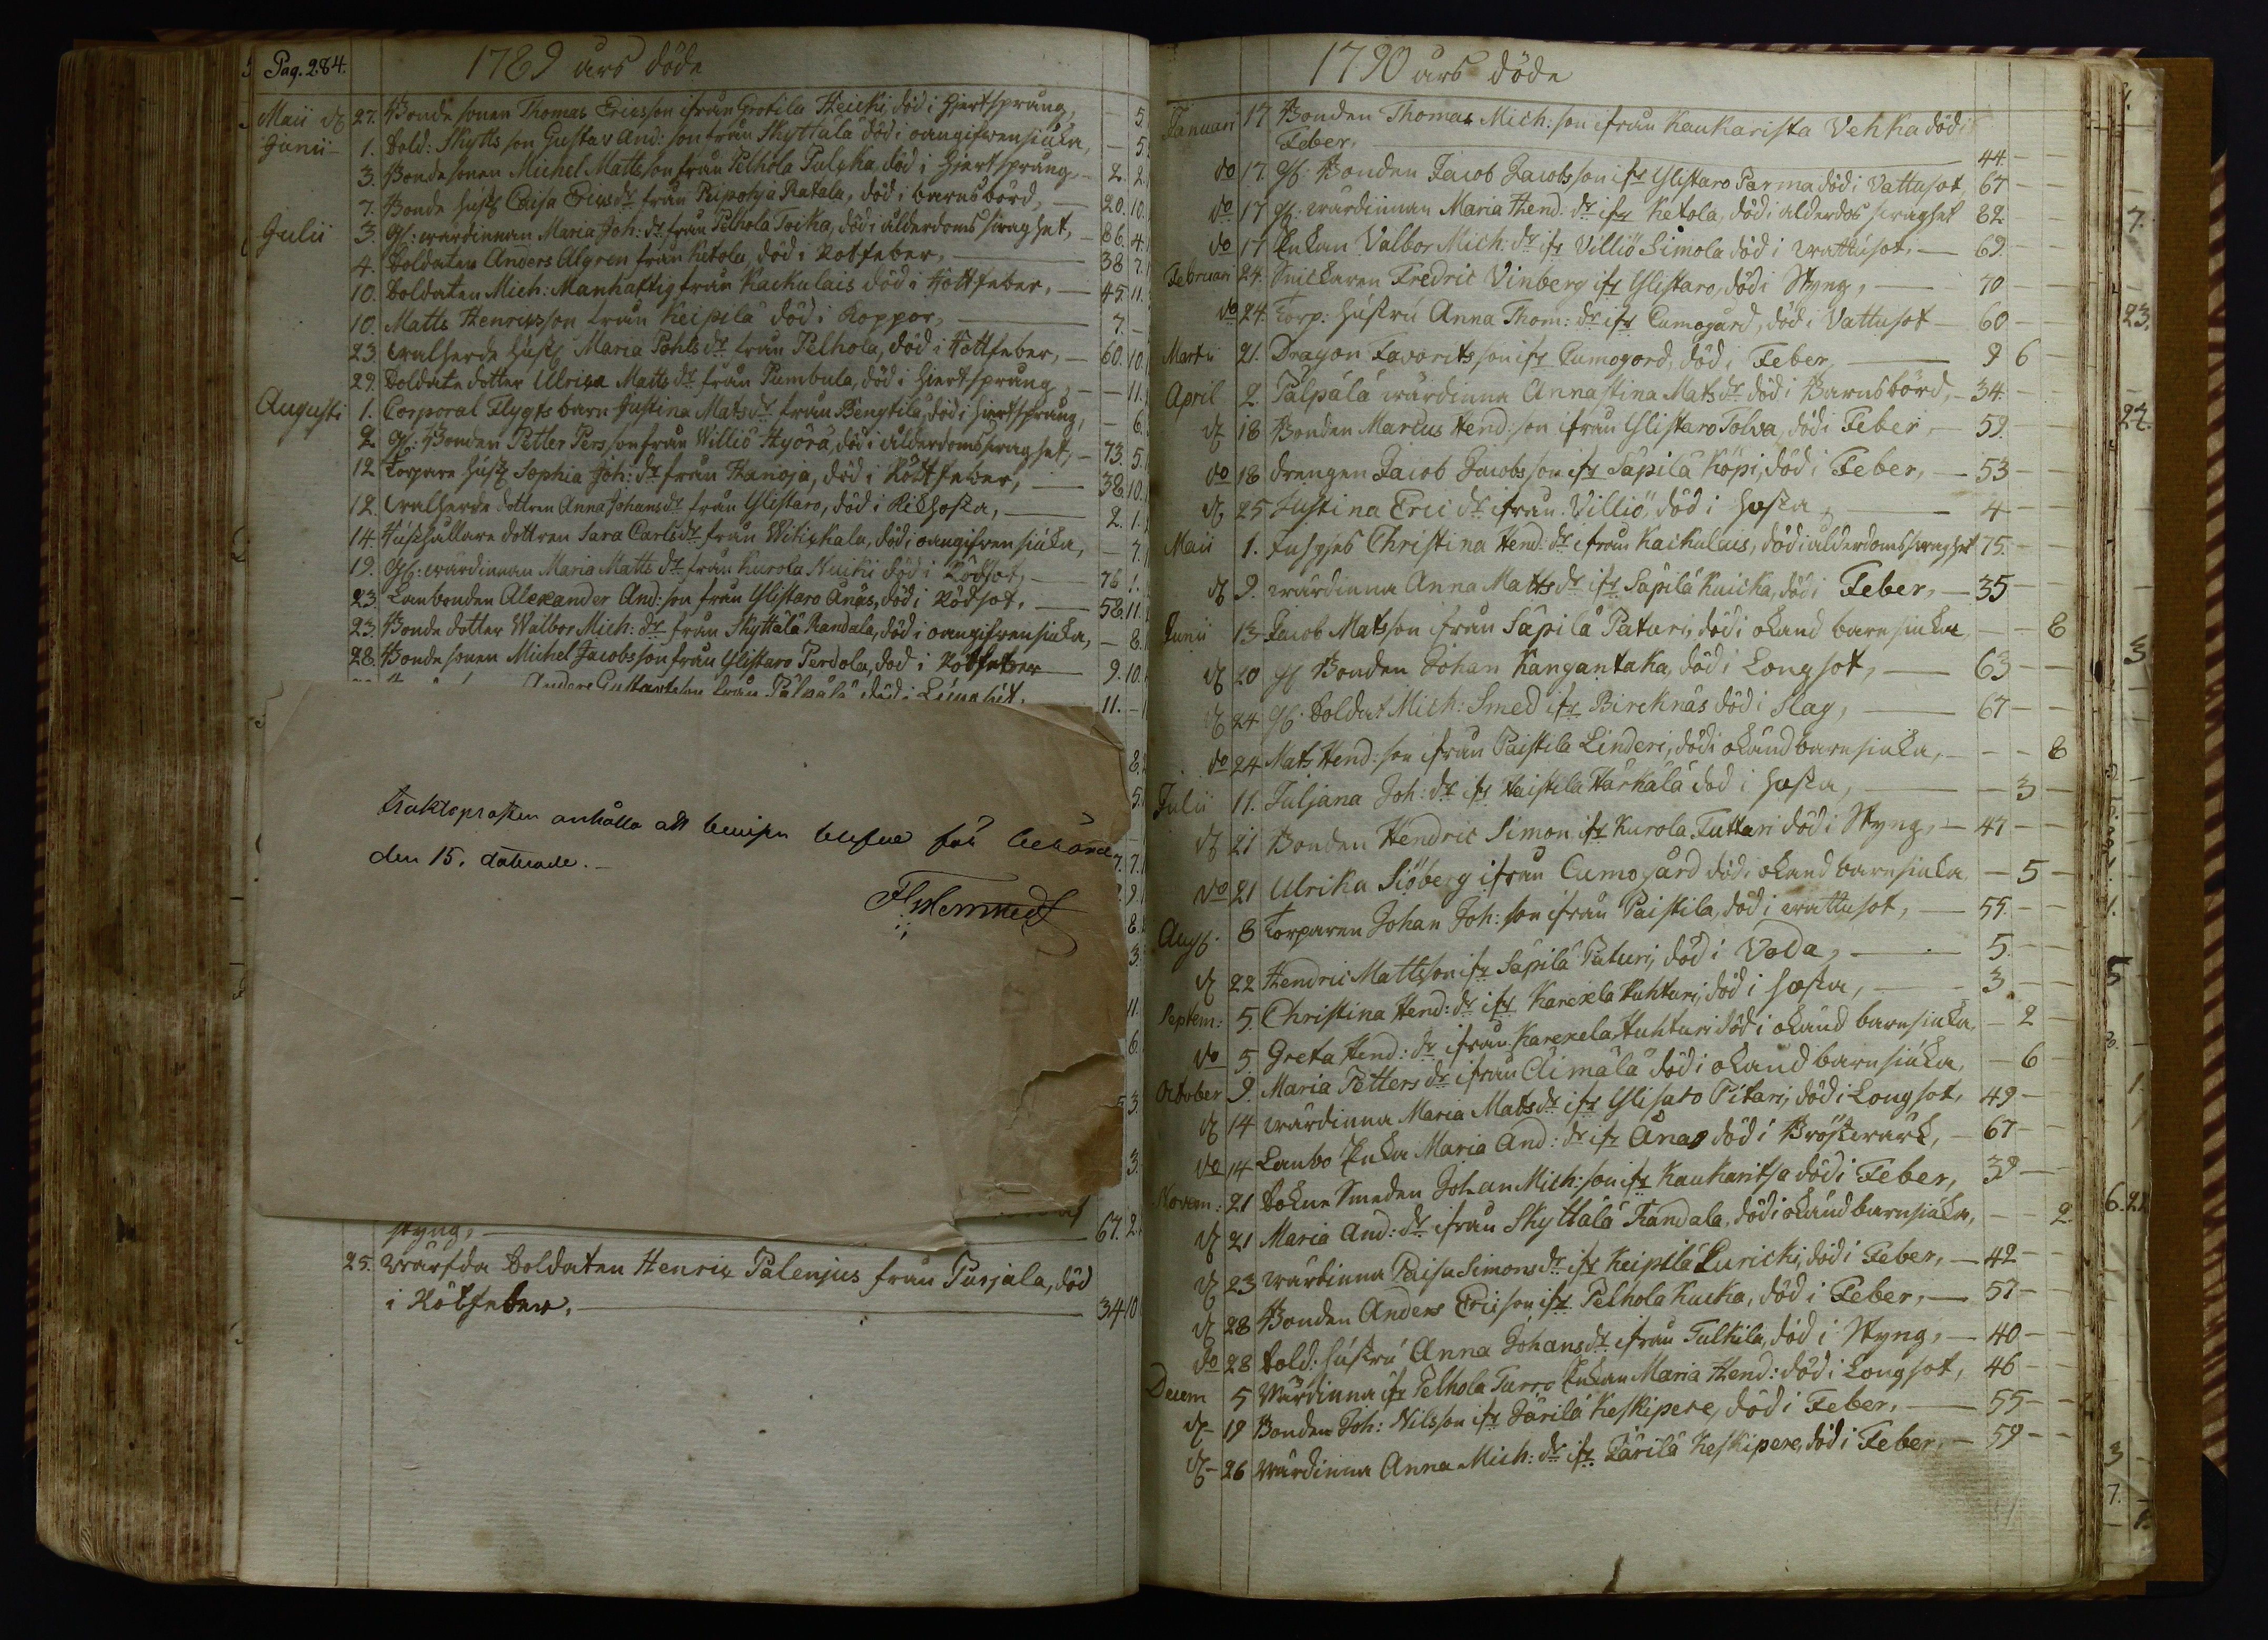 Pag. 284.
1789 års döde
Maii d. 27. Bonde sonen Thomas Ericsson ifrån Grotila Heicki död i Hjertsprång, — 5
Junii 1. Sold: Skytts son Gustav And: son från Skyttälä död i oangifven siuka, — 5
3. Bonde sonen Michel Mattsson från Pelhola Pulcka, död i Hjertsprång, 2. 2.
7. Bonde hust. Caisa Ericsdr från Peipohja Ratala, död i barnsbörd, — 20. 10.
Julii 3. Gl: wärdinnan Maria Joh: dr från Pelhola Tocka, död i ålderdoms swaghet, — 86. 4.
4. Soldaten Anders Algren från Ketola, död i Rotfeber, — 38 7.
10. Soldaten Mich: Manhaftig från Kackulais död i Rottfeber, — 45. 11.
10. Matts Henricsson från Keipilä död i Koppor, — 7. —
23. Walherde hust. Maria Pohlsdr från Pelhola, död i Rottfeber, — 60. 10.
29. Soldate dotter Ulrica Matts dr från Pumbula, död i Hiertsprång, — 11.
Augusti 1. Corporal Flygts barn Justina Matsdr från Bengtilä, död i Hiertsprång, — 6.
2. Gl: Bonden Petter Persson från Williö Hyörä, död i ålderdoms swaghet, — 73. 5.
12 Torpare hust. Sophia Joh: dr från Hanoja, död i Rottfeber, — 38. 10.
12. Walherde dottren Anna Johansdr från Ylistaro, död i Kikhosta, — 2. 1.
14. Hushållare dottren Sara Carlsdr från Witickala, död i oangifven siuka, — 7.
19. Gl: wärdinnan Maria Matts dr från Kurola Nuckii död i Rödsot, — 76 1.
23. Lanbonden Alexander And: son från Ylistaro Anäs, död i Rödsot, — 58. 11.
23. Bonde dotter Walbor Mich: dr från Skyttälä Kandala, död i oangifven siuka, — 8.
28. Bonde sonen Michel Jacobsson från Ylistaro Perdola, död i Rotfeber — 9. 10.
Anders Gustavsson från Pälpälä död i 11. —
den 15. daterade. —
styng, — 67. 2.
25. Wärfda Soldaten Henric Palenius från Purjala, död
i Rötfeber, — 34 10
1790 års döde
Januari 17 Bonden Thomas Mich: son ifrån Kaukarista Vehka död i
Feber, — 44 —
do 17. Gl: Bonden Jacob Jacobsson ifr Ylistaro Parma död i Vattusot, 67 —
do 17 Gl: wärdinnan Maria Hend: dr ifr Ketola, död i alderdos swaghet 82. —
do 17 Enkan Valbor Mich: dr ifr Villiö Simola död i wattusot, — 69. —
Februari 24. Snickaren Fredric Vinberg ifr Ylistaro, död i Styng, — 70
do 24. Torp: hustru Anna Thom: dr ifr Cumogård, död i Vattusot — 60 —
Martii 21. Dragon Favorits son ifr Cumogord, död i Feber, — 9 6 —
April 2. Pälpälä wärdinna Annastina Mats dr död i Barnsbörd, — 34 —
d. 18 Bonden Marcus Hend: son ifrån Ylistaro Tolva, död i Feber, — 59. —
do 18 drengen Jacob Jacobsson ifr Säpilä Köpi, död i Feber, — 53 —
d. 25 Justina Eric dr ifrån Villiö död i hosta, — 4 —
Maii 1. Inhyses Christina Hend: dr ifrån Kackulais, död i ålderdomsswaghet 75. —
d. 9. wärdinna Anna Matts dr ifr Säpilä Kuicka, död i Feber, — 35 —
Junii 13 Jacob Matsson ifrån Säpilä Paturi, död i okänd barnsiuka, — — 8
d. 20 Gl Bonden Johan Kangantaka, död i Longsot, — 63 —
d. 24 Gl. Soldat Mich: Smed ifr Bircknäs död i Slag, — 67 —
do 24 Mats Hend: son ifrån Paistila Linderi, död i okänd barnsiuka, — — 8
Julii 11. Juljana Joh: dr ifr Paistila Harkälä död i hosta, — — 3 —
d. 21 Bonden Hendric Simon ifr Kurola Tuttari död i Styng, — 47 —
do 21 Ulrika Siöberg ifrån Cumogård död i okänd barnsiuka, — 5 —
Aug. 8 Torparen Johan Joh: son ifrån Paistila, död i wattusot, — 55. —
d. 22 Hendric Mattsson ifr Säpilä Paturi, död i Voda, — 5. —
Septem: 5. Christina Hend: dr ifr Karexela Huhturi, död i hosta, — 3. —
do 5. Greta Hend: dr ifrån Karexela, Huhturi död i okänd barnsiuka, — 2 —
October 9. Maria Petters dr ifrån Äimälä död i okänd barnsiuka, — 6 —
d. 14 wärdinna Maria Mats dr ifr Ylisaro Pitari, död i Longsot, 49 —
do 14 Lanbo Enka Maria And: dr ifr Ånas död i Bröstwärk, — 67 —
Novem: 21 Sokne Smeden Johan Mich: son ifr Kaukaritsa död i Feber, 39 —
d. 21 Maria And: dr ifrån Skyttälä Kandala, död i okänd barnsiuka, — — 2.
d. 23 wärdinna Caisa Simons dr ifr Keipilä Luricki, död i Feber, — 42 —
d. 28 Bonden Anders Ericson ifr Pelhola Kucka, död i Feber, — 57 —
do 28 Sold: hustru Anna Johansdr ifrån Tulkila, död i Styng, — 40 —
Decem 5 Wärdinna ifr Pelhola Turro Enkan Maria Hend: död i Longsot, 46 —
d. 19 Bonden Joh: Nilsson ifr Järilä Keskipere, död i Feber, — 55 —
d. 26 Wärdinna Anna Mich: dr ifr Järilä Keskipere, död i Feber, — 59 —